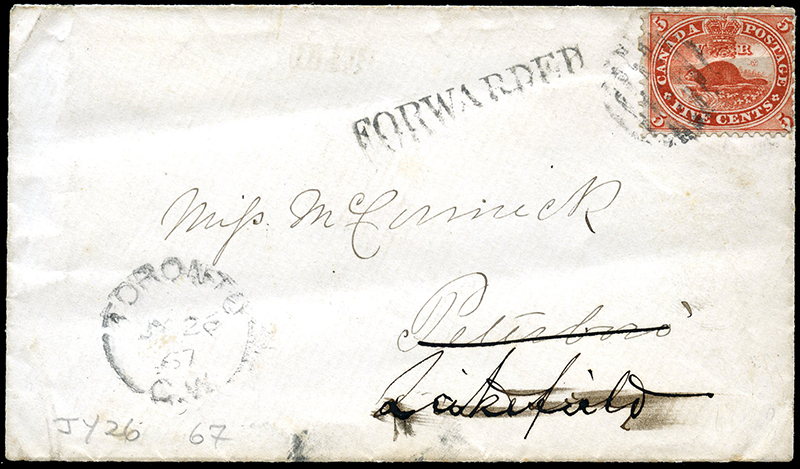 FORWARDED
5 CANADA POSTAGE 5
5 FIVE CENTS 5
Miss McCormick
Peterboro'
Lakefield
TORONTO
JY 26
67
C.W
JY26 67